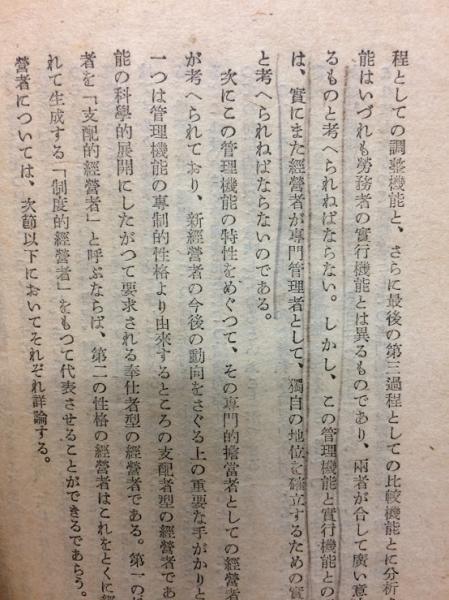 程としての調整機能と、さらに最後の第三過程としての比較機能とに分析
能はいづれも勞務者の實行機能とは異るものであり、兩者が合して廣い意
るものと考へられねばならない。しかし、この管理機能と實行機能との
は、實にまた經營者が專門管理者として、獨自の地位を確立するための實
と考へられねばならないのである。
次にこの管理機能の特性をめぐつて、その專門的擔當者としての經營者
が考へられており、新經營者の今後の動向をさぐる上の重要な手がかりと
一つは管理機能の專制的性格より由來するところの支配者型の經營者であ
能の科學的展開にしたがつて要求される奉仕者型の經營者である。第一の
者を「支配的經營者」と呼ぶならば、第二の性格の經營者はこれをとくに經
れて生成する「制度的經營者」をもつて代表させることができるであらう。
營者については、次節以下においてそれぞれ詳論する。